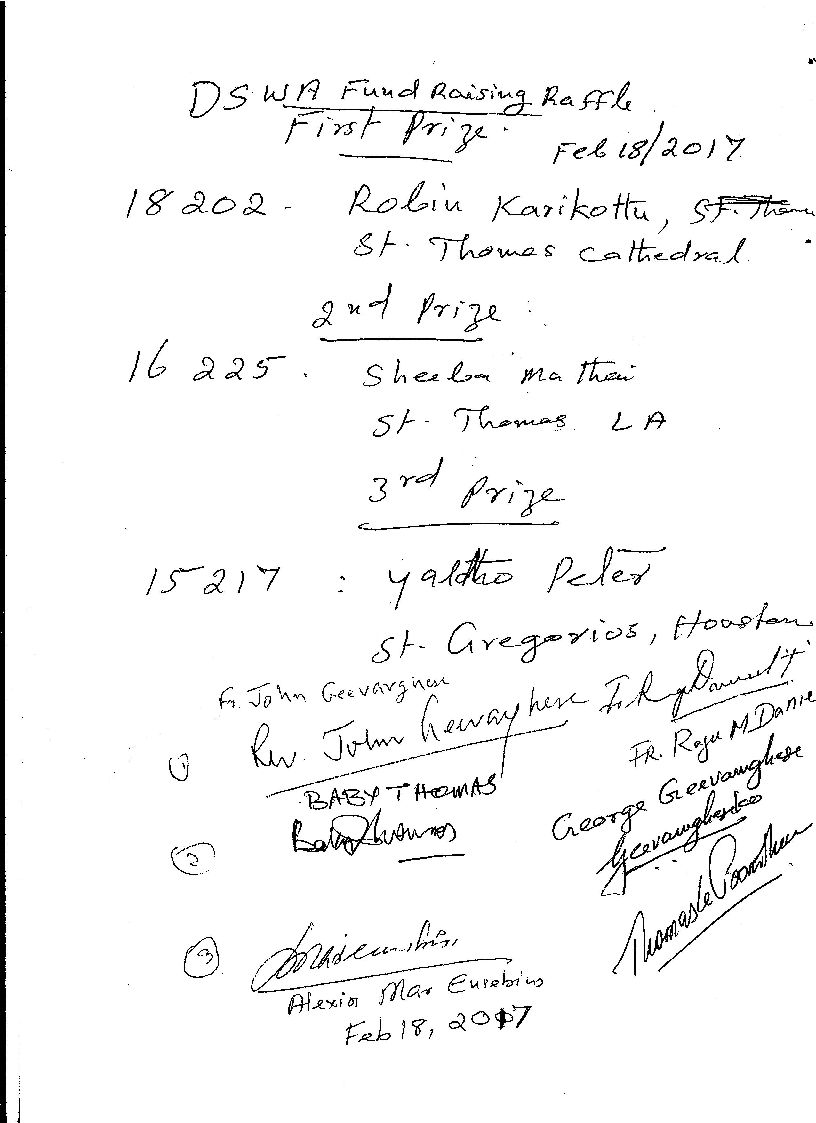 DSWA Fund Raising Raffle
First Prize.
Feb 18/2017
18202 - Robin Karikottu, St. Thomas
St. Thomas Cathedral
2nd Prize :
16225. Sheeba Mathai
St. Thomas LA
3rd Prize
15217 : Yaldho Peter
St. Gregorios, Houston
Fr. John Geevarghese
① Rev. John Geevarghese
FR. Raju M Daniel
BABY THOMAS
George Geevarghese
② Baby Thomas
③
Alexios Mar Eusebius
Feb 18, 2017